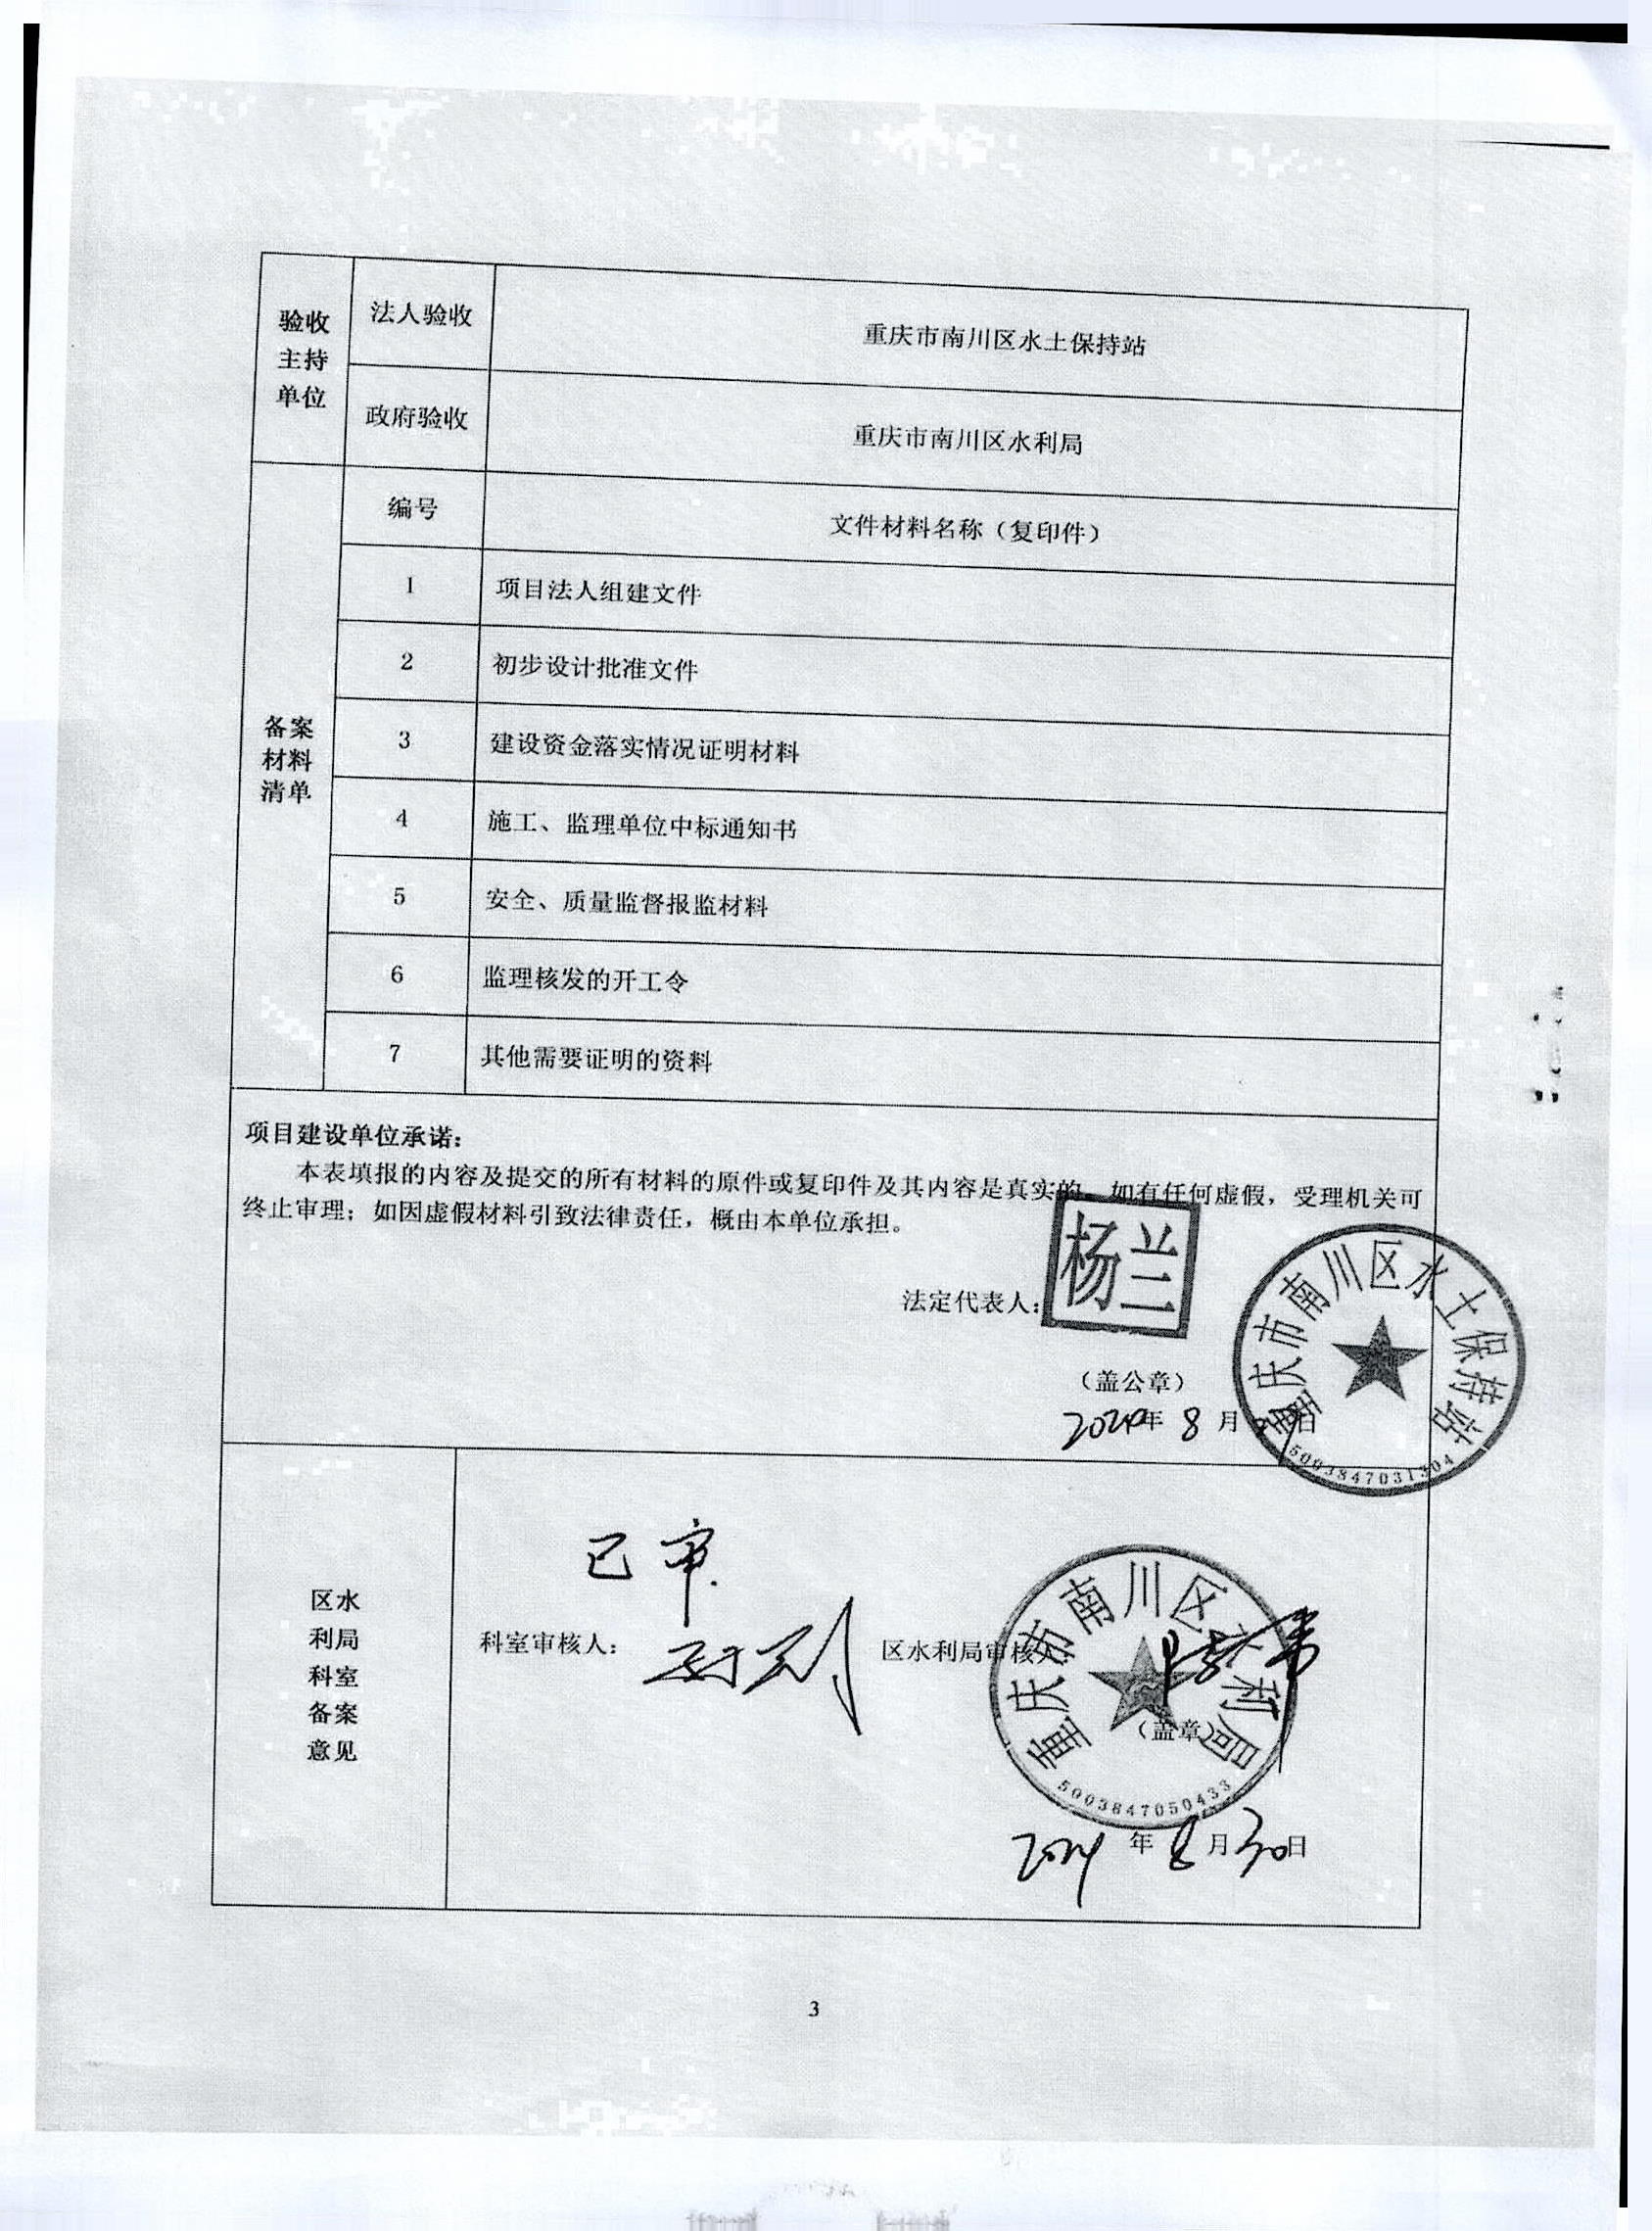 验收
主持
单位
法人验收
重庆市南川区水土保持站
政府验收
重庆市南川区水利局
备案
材料
清单
编号
文件材料名称（复印件）
1
项目法人组建文件
2
初步设计批准文件
3
建设资金落实情况证明材料
4
施工、监理单位中标通知书
5
安全、质量监督报监材料
6
监理核发的开工令
7
其他需要证明的资料
项目建设单位承诺：
本表填报的内容及提交的所有材料的原件或复印件及其内容是真实的。如有任何虚假，受理机关可
终止审理；如因虚假材料引致法律责任，概由本单位承担。
法定代表人：
杨兰
（盖公章）
重庆市南川区水土保持站
5003847031304
年 8 月 日
区水
利局
科室
备案
意见
已审
科室审核人：
区水利局审核人：
重庆市南川区水利局
（盖章）
5003847050433
2024 年 8 月 30 日
3